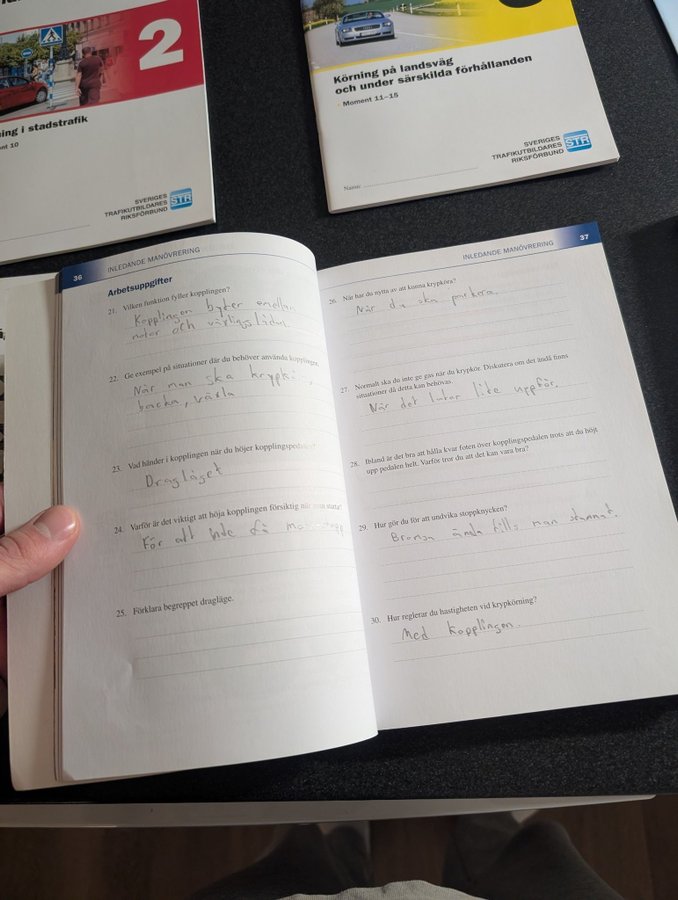 2
ing i stadstrafik
nt 10
SVERIGES
TRAFIKUTBILDARES
RIKSFÖRBUND
STR
Körning på landsväg
och under särskilda förhållanden
Moment 11–15
Namn:
SVERIGES
TRAFIKUTBILDARES
RIKSFÖRBUND
STR
36 INLEDANDE MANÖVRERING
Arbetsuppgifter
21. Vilken funktion fyller kopplingen?
Kopplingen byter emellan
motor och växligslådan
22. Ge exempel på situationer där du behöver använda kopplingen.
När man ska krypk ,
backa, växla
23. Vad händer i kopplingen när du höjer kopplingspedalen?
Dragläget
24. Varför är det viktigt att höja kopplingen försiktig när man startar?
För att inte få
25. Förklara begreppet dragläge.
INLEDANDE MANÖVRERING 37
26. När har du nytta av att kunna krypköra?
När du ska parkera.
27. Normalt ska du inte ge gas när du krypkör. Diskutera om det ändå finns
situationer då detta kan behövas.
När det lutar lite uppför.
28. Ibland är det bra att hålla kvar foten över kopplingspedalen trots att du höjt
upp pedalen helt. Varför tror du att det kan vara bra?
29. Hur gör du för att undvika stoppknycken?
Bromsa ända tills man stannat.
30. Hur reglerar du hastigheten vid krypkörning?
Med kopplingen.